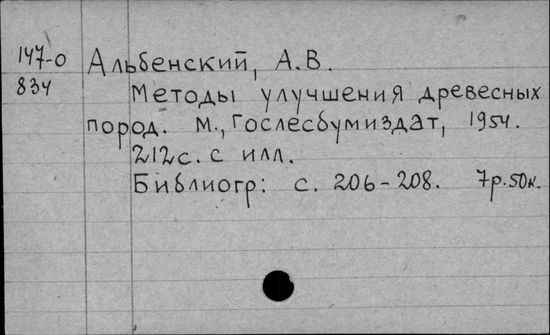 147-0 Альбенский, А.В.
834
Методы улучшения древесных
пород. М., Гослесбумиздат, 1954.
212с. с илл.
Библиогр: с. 206-208. 7р.50к.